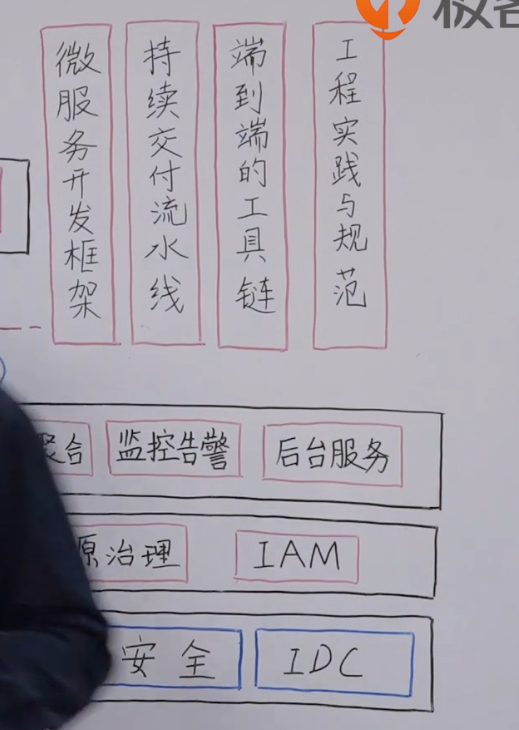 微服务开发框架
持续交付流水线
端到端的工具链
工程实践与规范
合
监控告警
后台服务
治理
IAM
安全
IDC